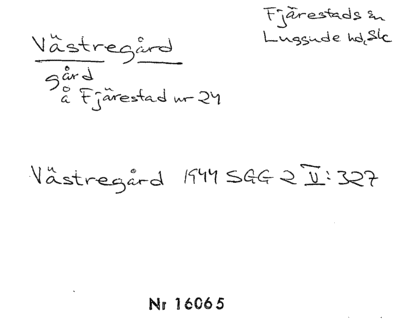 Fjärestads sn
Luggude hd, Sk
Västregård
gård
å Fjärestad nr 24
Västregård 1944 SGG 2 V:327
Nr 16065